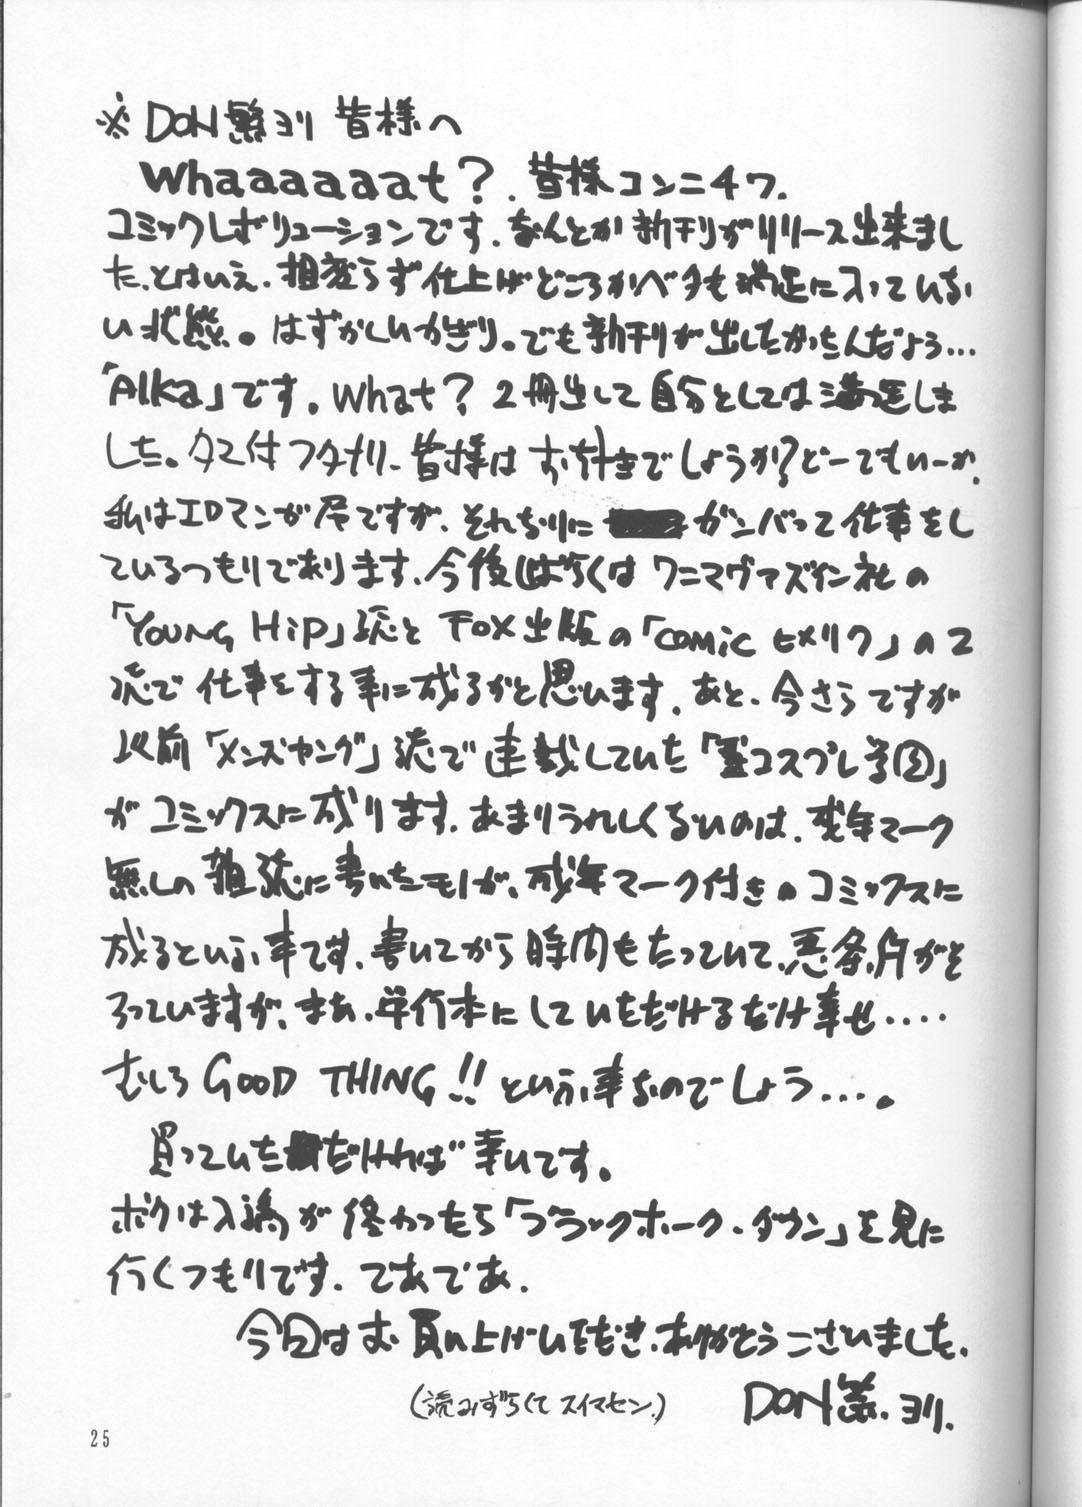 ※DON繁ヨリ 皆様へ
Whaaaaaaat?. 皆様コンニチワ.
コミックレボリューションです.なんとか新刊がリリース出来まし
た.とはいえ.相変らず仕上げどころかベタも満足に入っていな
い状態。はずかしいかぎり。でも新刊が出したかったんだよう…
「Alka」です。What? 2冊出して自分としては満足しま
した。タマ付フタナリ.皆様はお好きでしょうか?どーでもいーか.
私はエロマンガ屋ですが.それなりに ガンバって仕事をし
ているつもりであります.今後しばらくはワニマガズイン社の
「YOUNG HiP」誌とFOX出版の「comic ヒメリク」の2
誌で仕事をする事に成るかと思います.あと.今さらですが
以前「メンズヤング」誌で連載していた「コスプレ学園」
がコミックスに成ります.あまりうれしくないのは.成年マーク
無しの雑誌に書いたモノが、成年マーク付きのコミックスに
成るという事です.書いてから時間もたっていて、悪条件がそ
ろっていますが、まあ.単行本にしていただけるだけ幸せ‥‥
むしろGOOD THING!!という事なのでしょう….。
買っていただければ幸いです。
ボクは入稿が終わったら「ブラックホーク・ダウン」を見に
行くつもりです.であであ.
今回はお買い上げいただき.ありがとうございました.
(読みずらくてスイマセン.)
DON繁.ヨリ.
25